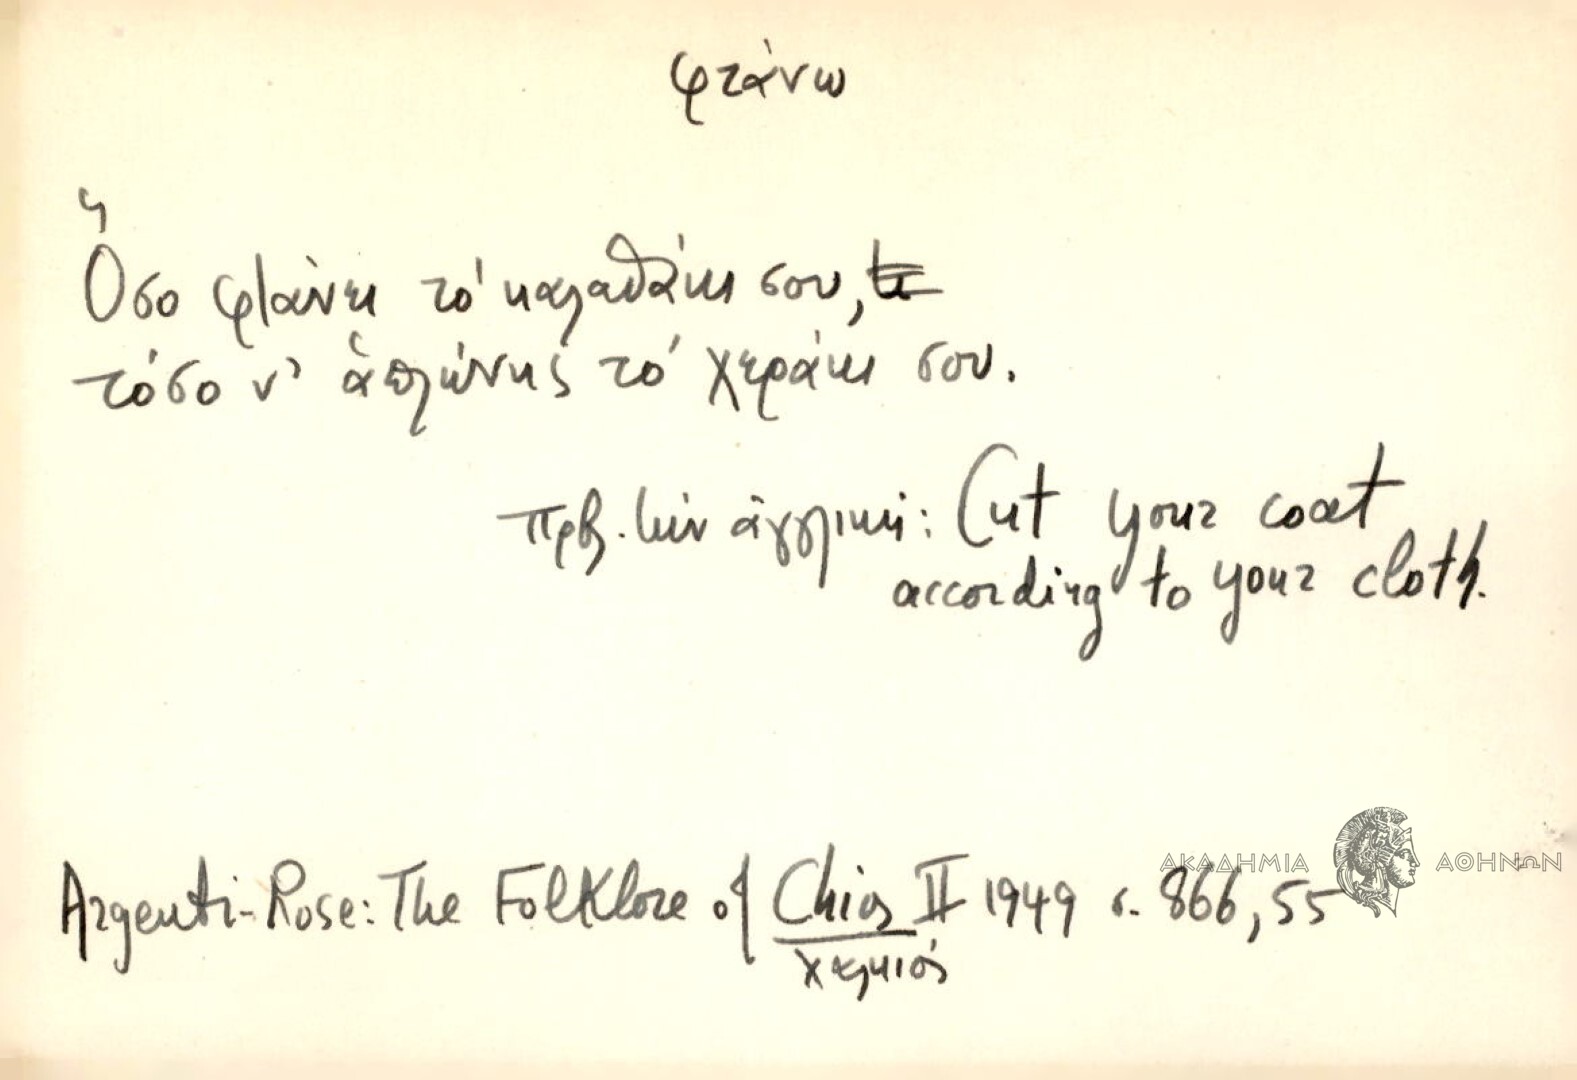 φτάνω
Ὅσο φτάνει τό καλαθάκι σου,
τόσο ν' ἁπλώνῃς τό χεράκι σου.
πρβ. τήν ἀγγλική: Cut your coat
according to your cloth.
ΑΚΑΔΗΜΙΑ ΑΘΗΝΩΝ
Argenti-Rose: The Folklore of Chios II 1949 σ. 866, 55
Χαλκιός